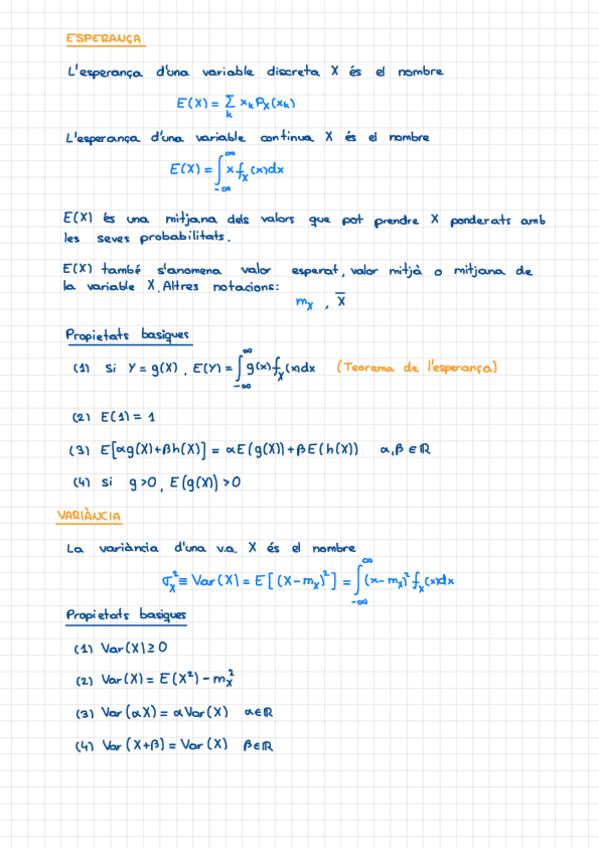 ESPERANÇA
L'esperança d'una variable discreta X és el nombre
E(X) = Σ_k x_k P_X(x_k)
L'esperança d'una variable contínua X és el nombre
E(X) = ∫_{-∞}^{∞} x f_X(x)dx
E(X) és una mitjana dels valors que pot prendre X ponderats amb
les seves probabilitats.
E(X) també s'anomena valor esperat, valor mitjà o mitjana de
la variable X. Altres notacions:
m_X , X̅
Propietats basiques
(1) Si Y = g(X), E(Y) = ∫_{-∞}^{∞} g(x) f_X(x)dx (Teorema de l'esperança)
(2) E(1) = 1
(3) E[αg(X)+βh(X)] = αE(g(X))+βE(h(X)) α,β ∈ ℝ
(4) Si g>0, E(g(X))>0
VARIÀNCIA
La variància d'una v.a. X és el nombre
σ_X² ≡ Var(X) = E[(X-m_X)²] = ∫_{-∞}^{∞} (x-m_X)² f_X(x)dx
Propietats basiques
(1) Var(X) ≥ 0
(2) Var(X) = E(X²) - m_X²
(3) Var(αX) = αVar(X) α∈ℝ
(4) Var(X+β) = Var(X) β∈ℝ